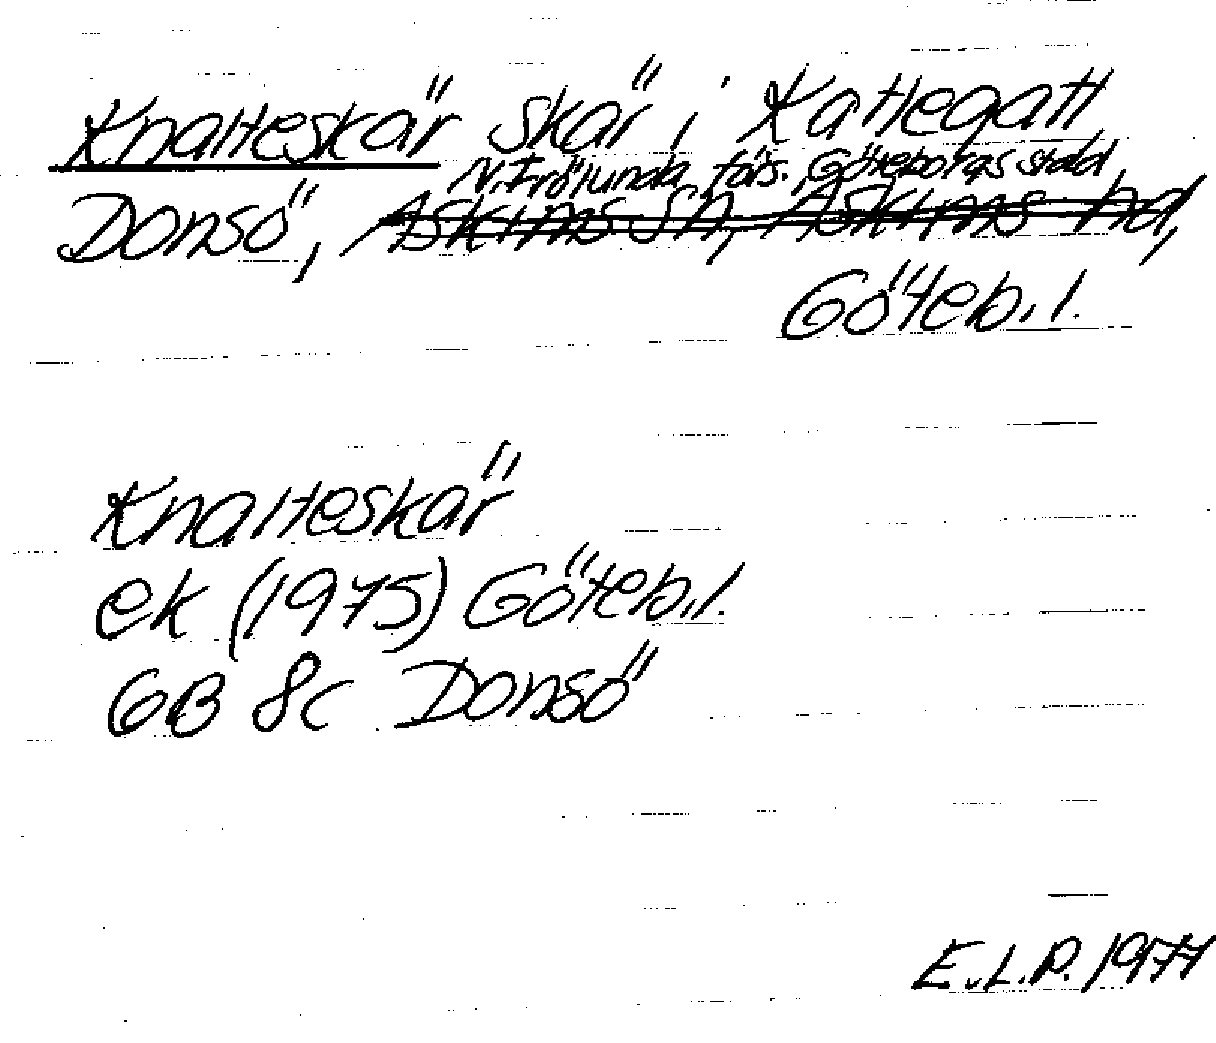 Knalteskär skär i Kattegatt,
V. Frölunda förs. Göteborgs stad,
Donsö, Askims sn, Askims hd,
Göteb. l.
Knalteskär
ek (1975) Göteb. l.
6B 8c Donsö
E.L.P. 1977